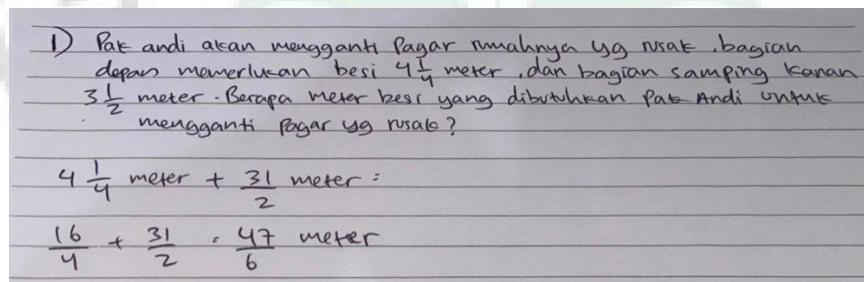 1) Pak andi akan mengganti Pagar rumahnya yg rusak . bagian
depan memerlukan besi 4 1/4 meter , dan bagian samping kanan
3 1/2 meter . Berapa meter besi yang dibutuhkan Pak Andi untuk
mengganti Pagar yg rusak ?
4 1/4 meter + 31/2 meter =
16/4 + 31/2 = 47/6 meter